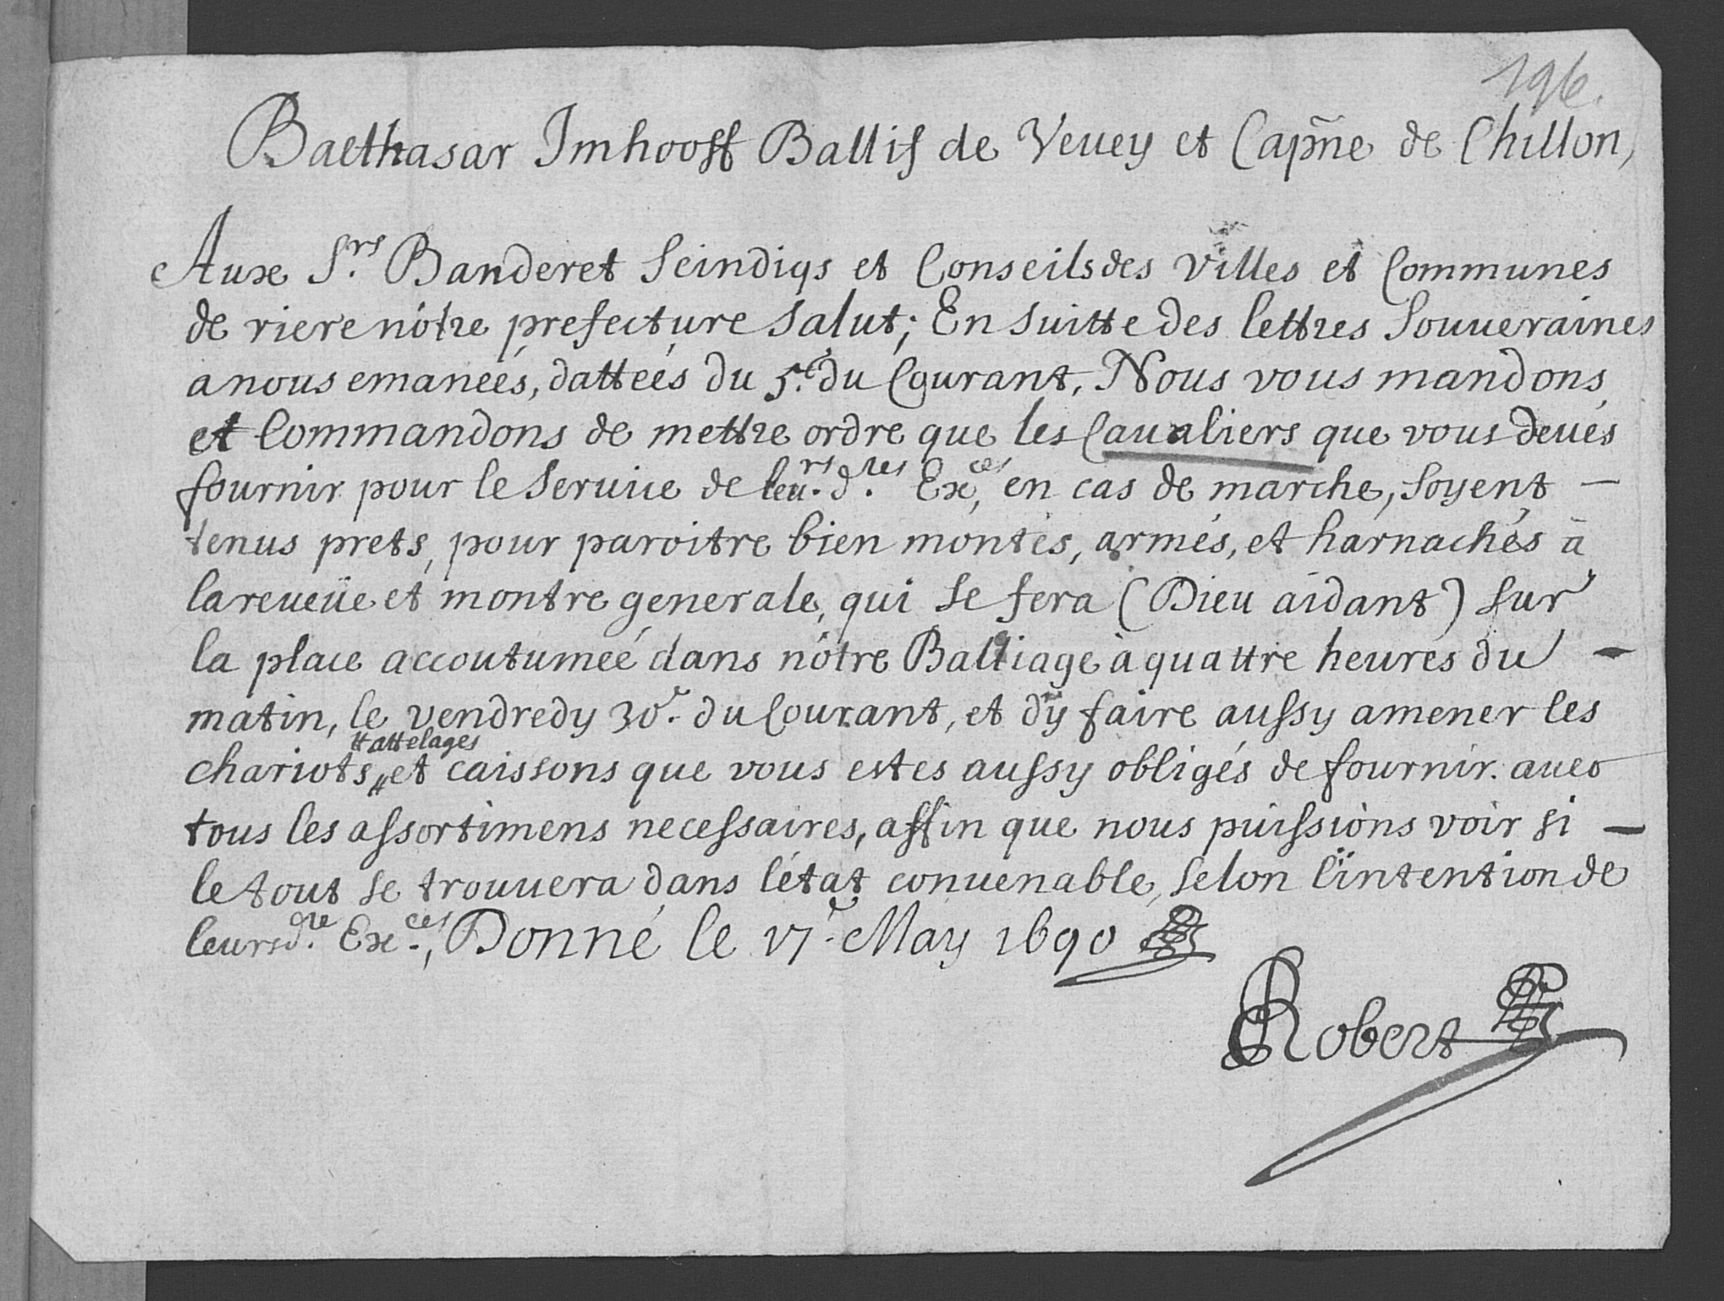 196.
Balthasar Imhooff Ballif de Veuey et Cap̄ne de Chillon,
Aux S.rs Banderet Seindiqs et Conseils des villes et Communes
de riere nôtre prefecture salut; En suitte des lettres Souueraines
a nous emanées, dattées du 5.e du Courant, Nous vous mandons
et Commandons de mettre ordre que les Caualiers que vous deués
fournir pour le Seruice de leurs.rs d.tes Ex.ces, en cas de marche, soyent –
tenus prets, pour paroitre bien montés, armés, et harnachés à
la reueüe et montre generale, qui se fera (Dieu aidant) sur
la place accoutumée dans nôtre Balliage à quattre heures du –
matin, le vendredy 30.e du Courant, et d'y faire aussy amener les
attelages
chariots, et caissons que vous estes aussy obligés de fournir. auec
tous les assortimens necessaires, affin que nous puissions voir si –
le tout se trouuera dans l'état conuenable, selon l'intention de
leurs d.te Ex.ces, Donné le 17.e May 1690
Robert